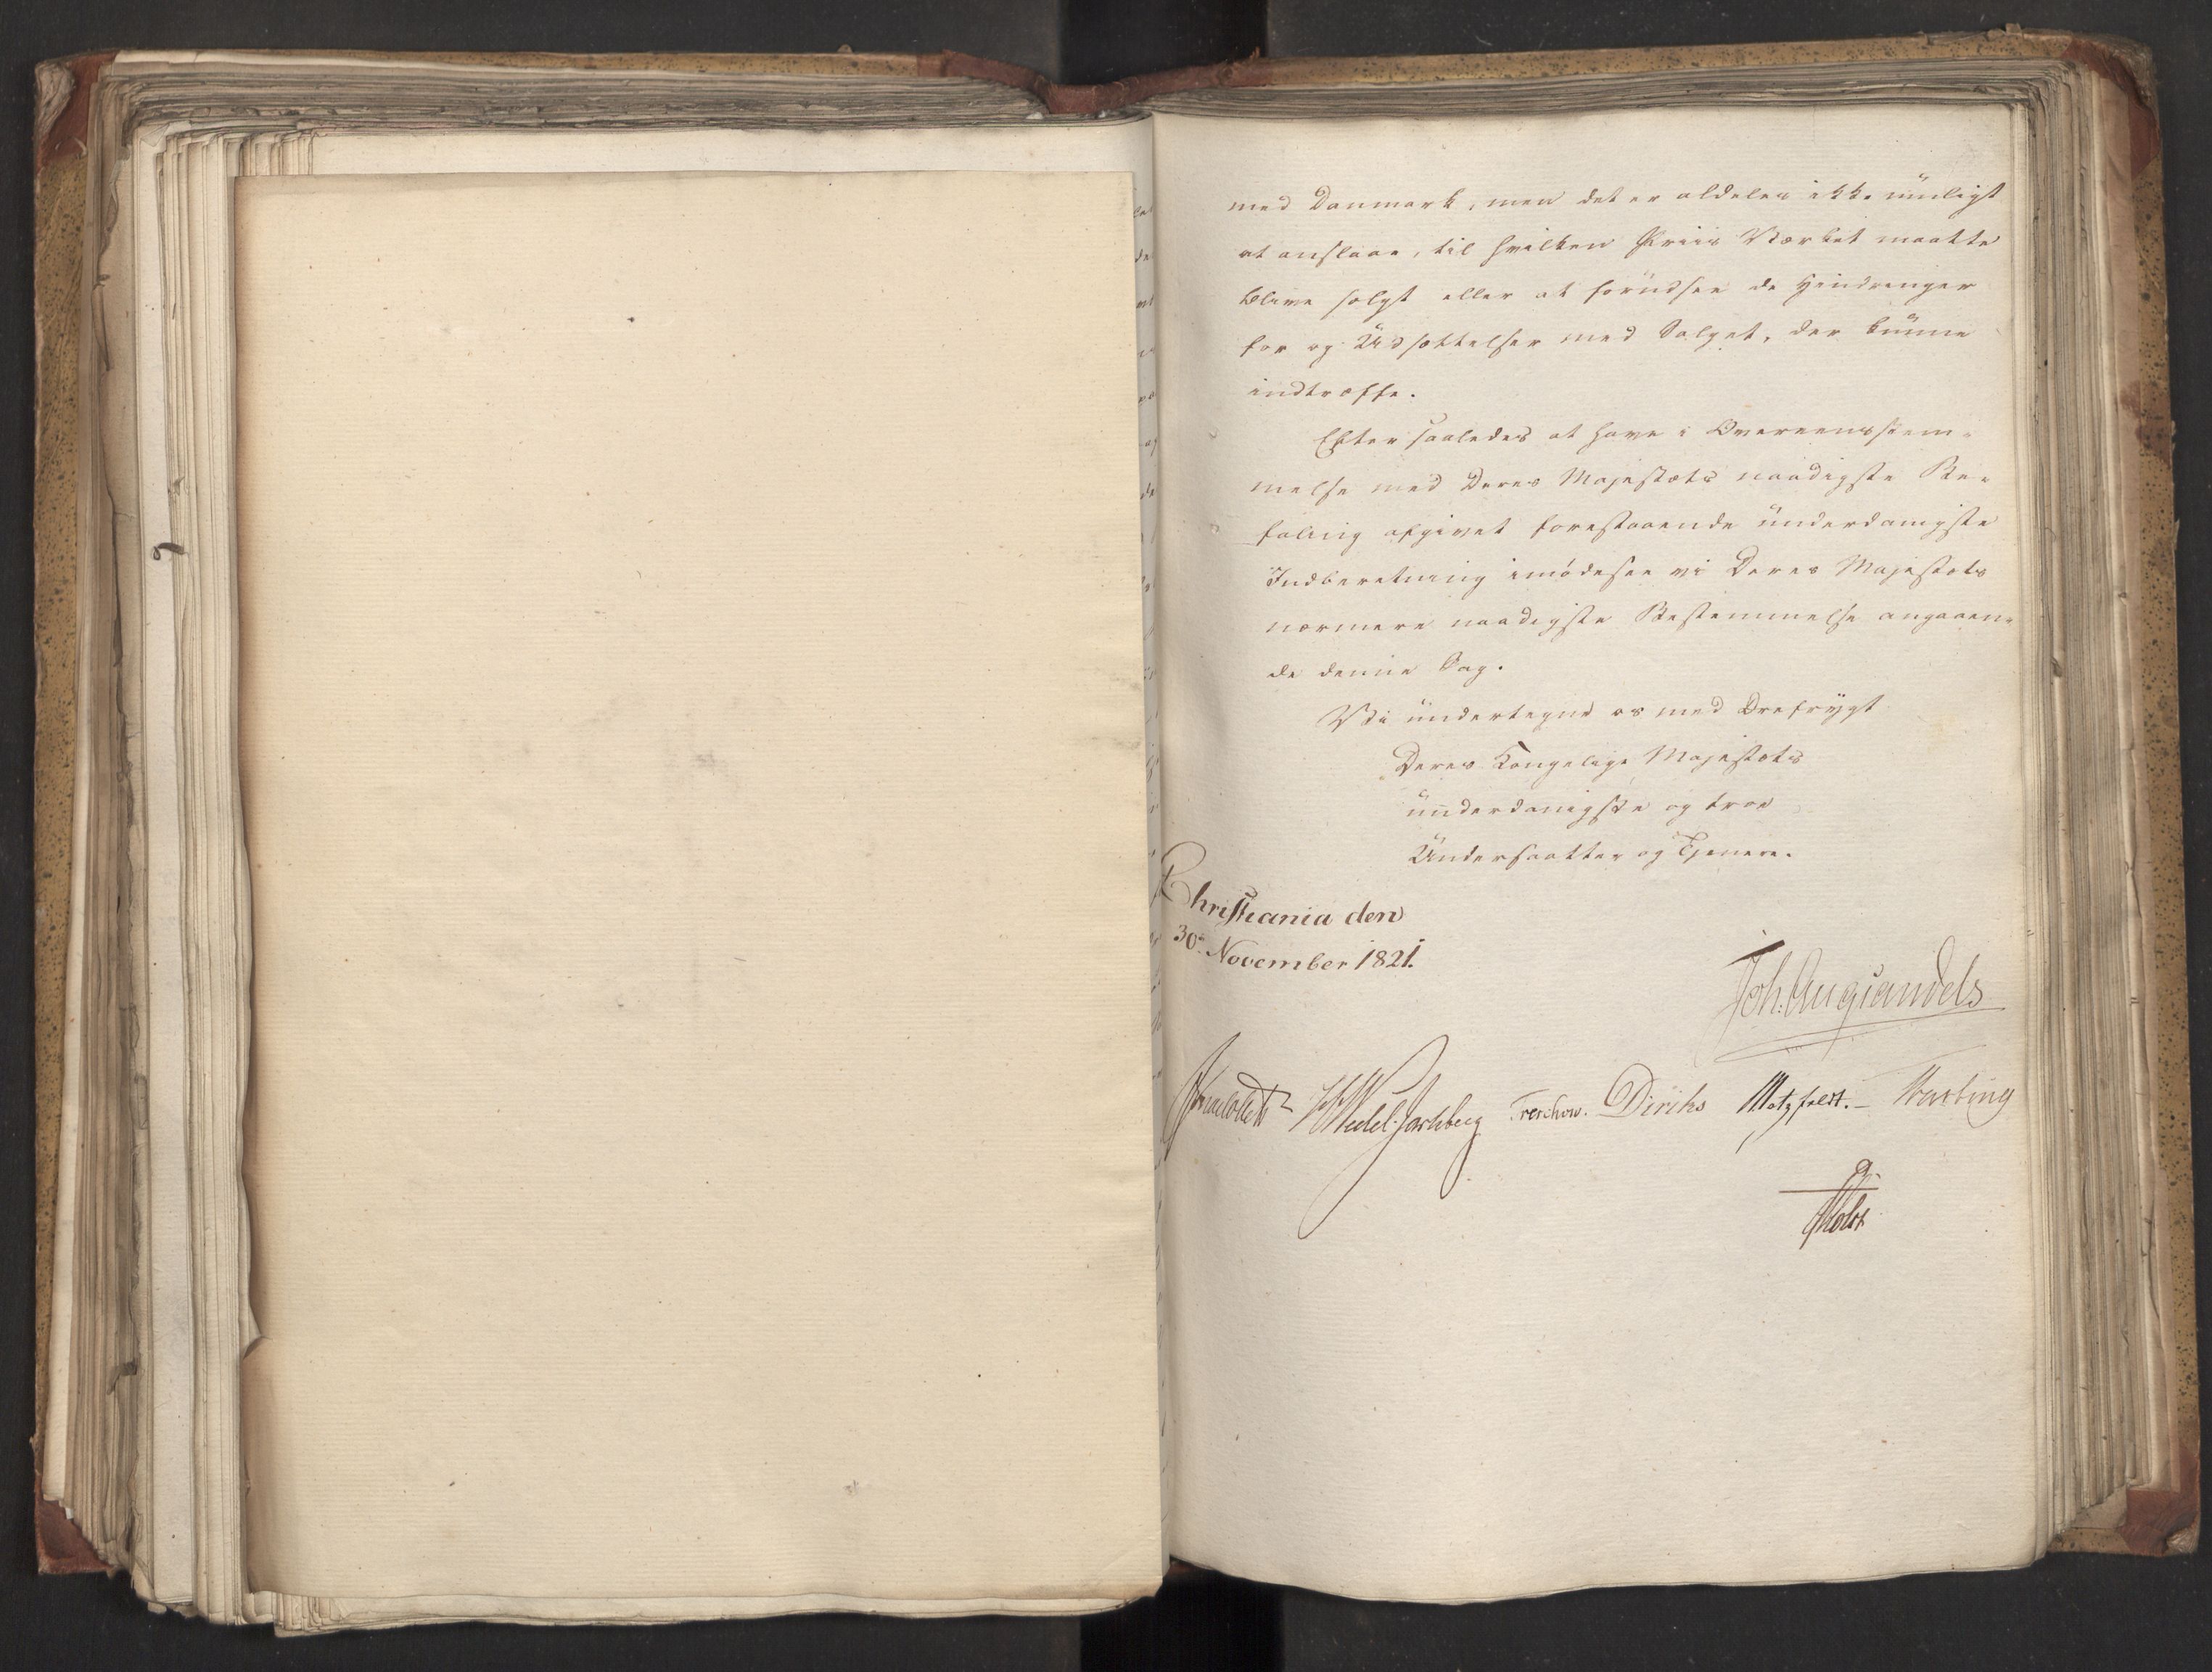 med Danmark, men det er aldeles ikke mueligt
at anslaae, til hvilken Priis Værket maatte
blive solgt eller at forudsee de Hindringer
for og Udsættelser med Salget, der kunne
indtræffe.
Efter saaledes at have i Overeensstem-
melse med Deres Majestæts naadigste Be-
faling afgivet forestaaende underdanigste
Indberetning imødesee vi Deres Majestæts
nærmere naadigste Bestemmelse angaaen-
de denne Sag.
Vi undertegne os med Ærefrygt
Deres Kongelige Majestæts
underdanigste og troe
Undersaatter og Tjenere.
Christiania den
30te November 1821.
Joh: Aug Sandels
Collett HWedel-Jarlsberg Treschow. Diriks Motzfeldt.- Fasting
Holst